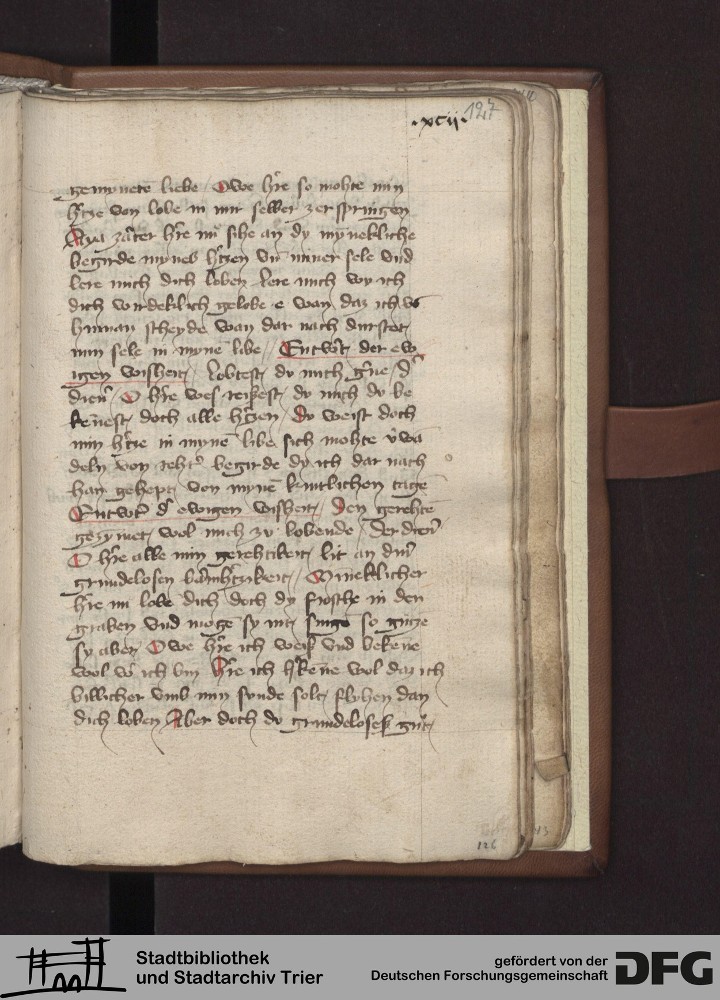 127
·xcij·
gemynete liebe / Owe hr̄e so mohte min
h̄tze von lobe in mir selber zerspringen
Aya zarter hr̄e nu sihe an dy mynnekliche
begirde mynes h̄tzen vn̄ miner sele vnd
lere mich dich loben lere mich wy ich
dich wirdeklich gelobe e wan daz ich vs
hinnan scheyde wan dar nach durstet
min sele in mynē libe // Entw̄t der ew
igen wisheit / lobtest du mich ḡne / d̄
dien̄ / O hr̄e wes reissest du mich du be
kēnest doch alle h̄tzen / Du weist doch
min h̄tze in mynē libe sich mohte v̄wā
deln von rehter begirde dy ich dar nach
han gehept von mynē kintlichen tagē
Entwort d̄ ewigen wisheit / Den gerehtē
gezymet wol mich zu lobende / der dien̄
O hr̄e alle min gerehtikeit lit an din̄
grundelosen bārmh̄tzikeit / Mīneklicher
hr̄e nu lobē dich doch dy frosche in den
graben vnd moge sy nit singē so ginze
sy aber / Owe hr̄e ich weis vnd bekēne
wol w̄ ich bin hr̄e ich bekēne wol daz ich
billicher vmb min sunde solt flyhen dan
dich loben Aber doch du grundeloses gūt
126
Stadtbibliothek
und Stadtarchiv Trier
gefördert von der
Deutschen Forschungsgemeinschaft
DFG